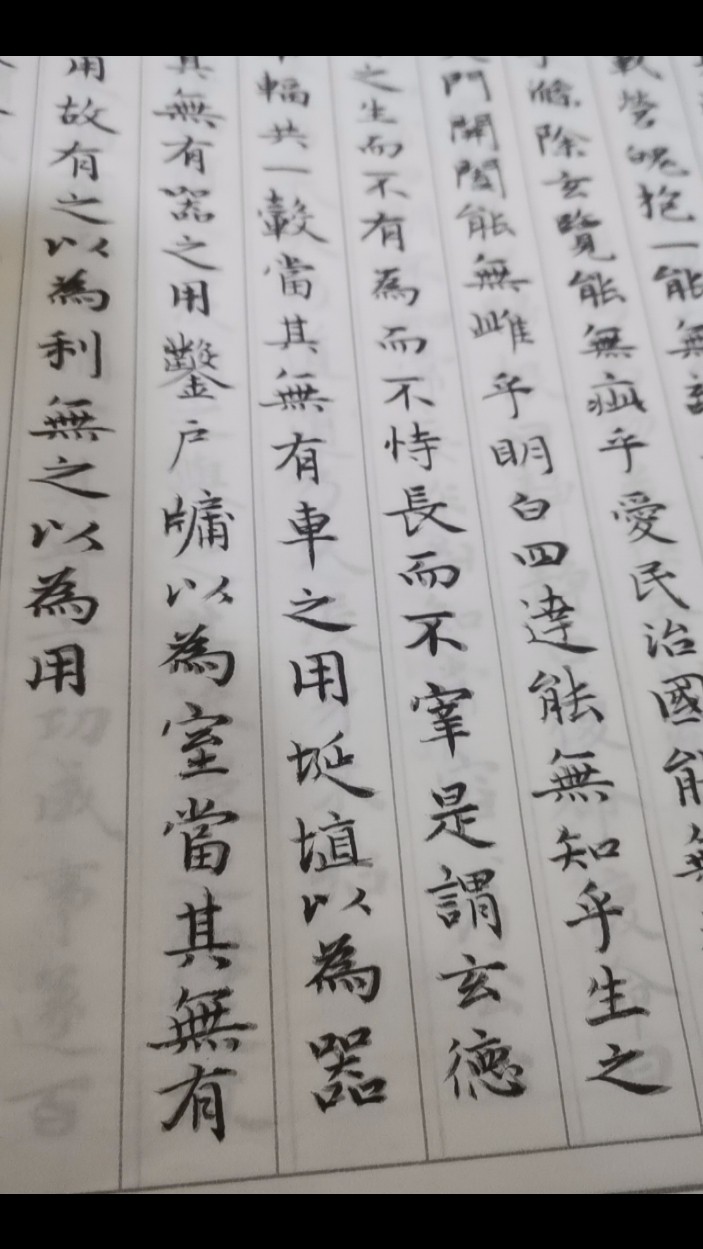 營魄抱一能無
滌除玄覽能無疵乎愛民治國能無
門開闔能無雌乎明白四達能無知乎生之
之生而不有為而不恃長而不宰是謂玄德
輻共一轂當其無有車之用埏埴以為器
其無有器之用鑿戶牖以為室當其無有
用故有之以為利無之以為用